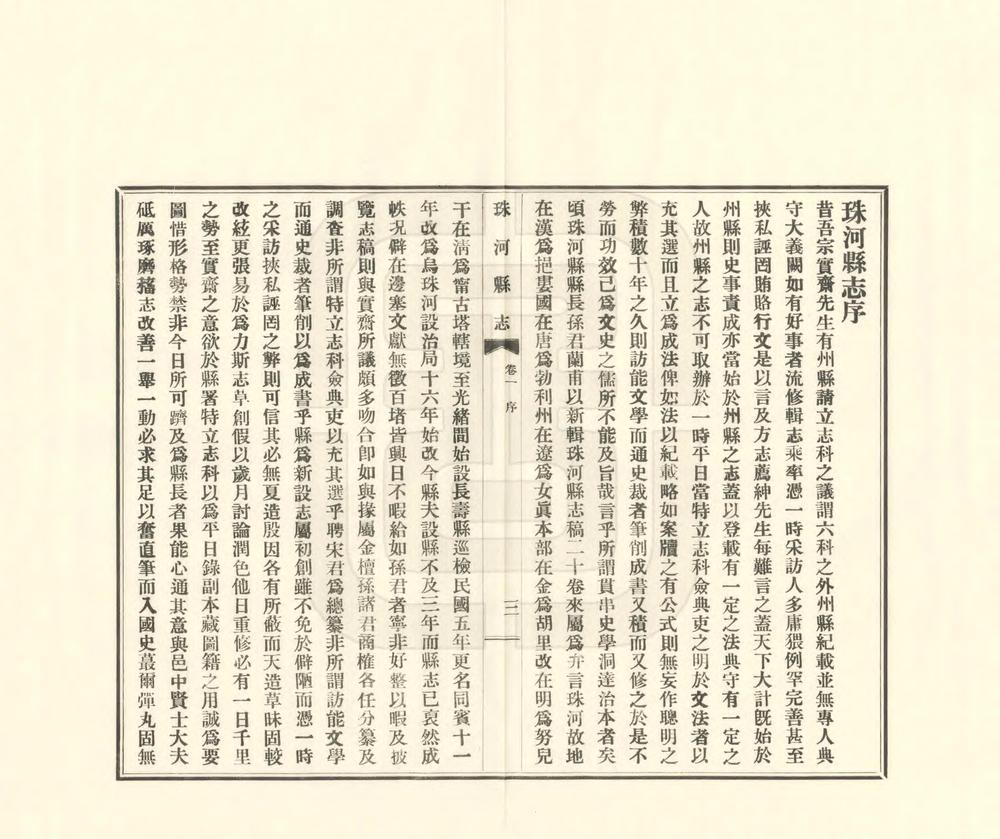 珠河縣志序
昔吾宗實齋先生有州縣請立志科之議謂六科之外州縣紀載並無專人典
守大義闕如有好事者流修輯志乘率憑一時采訪人多庸猥例罕完善甚至
挾私誣罔賄賂行文是以言及方志薦紳先生每難言之蓋天下大計旣始於
州縣則史事責成亦當始於州縣之志蓋以登載有一定之法典守有一定之
人故州縣之志不可取辦於一時平日當特立志科僉典吏之明於文法者以
充其選而且立爲成法俾如法以紀載略如案牘之有公式則無妄作聰明之
弊積數十年之久則訪能文學而通史裁者筆削成書又積而又修之於是不
勞而功效已爲文史之儒所不能及旨哉言乎所謂貫串史學洞達治本者矣
頃珠河縣縣長孫君蘭甫以新輯珠河縣志稿二十卷來屬爲弁言珠河故地
在漢爲挹婁國在唐爲勃利州在遼爲女眞本部在金爲胡里改在明爲努兒
珠河縣志
卷一 序
二
干在淸爲甯古塔轄境至光緒間始設長壽縣巡檢民國五年更名同賓十一
年改爲烏珠河設治局十六年始改今縣夫設縣不及三年而縣志已裒然成
帙況僻在邊塞文獻無徵百堵皆興日不暇給如孫君者寧非好整以暇及披
覽志稿則與實齋所議頗多吻合卽如與掾屬金檀孫諸君商榷各任分纂及
調查非所謂特立志科僉典吏以充其選乎聘宋君爲總纂非所謂訪能文學
而通史裁者筆削以爲成書乎縣爲新設志屬初創雖不免於僻陋而憑一時
之采訪挾私誣罔之弊則可信其必無夏造殷因各有所蔽而天造草昧固較
改絃更張易於爲力斯志草創假以歲月討論潤色他日重修必有一日千里
之勢至實齋之意欲於縣署特立志科以爲平日錄副本藏圖籍之用誠爲要
圖惜形格勢禁非今日所可躋及爲縣長者果能心通其意與邑中賢士大夫
砥厲琢磨搖志改善一舉一動必求其足以奮直筆而入國史蕞爾彈丸固無